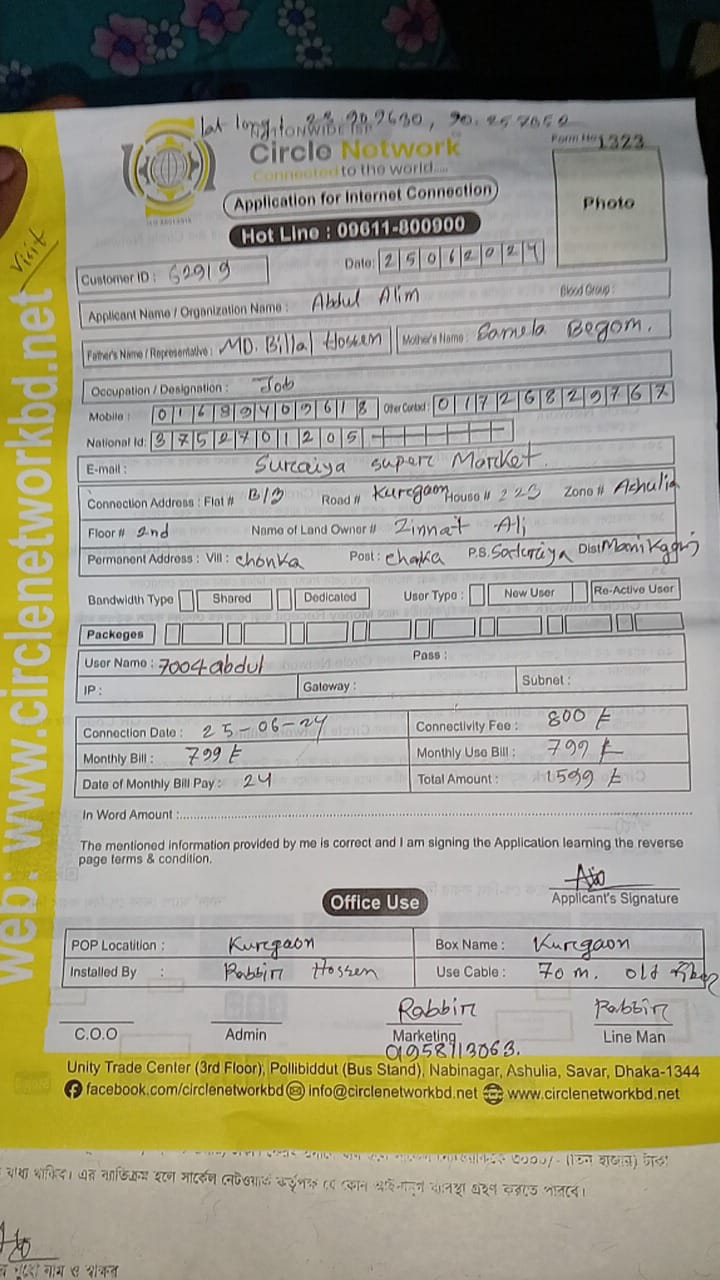 lat long : 23.909630, 90.257050
NATIONWIDE ISP
Circle Network
Connected to the world.....
Form No 1323
Photo
Application for Internet Connection
Hot Line : 09611-800900
Visit
Customer ID : 62919
Date: 25062024
Applicant Name / Organization Name : Abdul Alim Blood Group :
Father's Name / Representative : MD. Billal Hossen Mother's Name : Samela Begom.
Occupation / Designation : Job
Mobile : 01689409618 Other Contact : 01726829767
National Id: 3752701205
E-mail : Suraiya super Market.
Connection Address : Flat # B/3 Road # Kurgaon House # 223 Zone # Ashulia
Floor # 2nd Name of Land Owner # Zinnat Ali
Permanent Address : Vill : chonka Post : chonka P.S. Saturiya Dist Manikgonj
Bandwidth Type Shared Dedicated User Type : New User Re-Active User
Packeges
User Name : 7004abdul Pass :
IP : Gateway : Subnet :
Connection Date : 25-06-24 Connectivity Fee : 800 ৳
Monthly Bill : 799 ৳ Monthly Use Bill : 799 ৳
Date of Monthly Bill Pay : 24 Total Amount : 1599 ৳
In Word Amount :
The mentioned information provided by me is correct and I am signing the Application learning the reverse
page terms & condition.
Applicant's Signature
Office Use
POP Locatition : Kurgaon Box Name : Kurgaon
Installed By : Rabbir Hossen Use Cable : 70 m. old
Rabbir Rabbir
C.O.O Admin Marketing Line Man
01958113063.
Unity Trade Center (3rd Floor), Pollibiddut (Bus Stand), Nabinagar, Ashulia, Savar, Dhaka-1344
facebook.com/circlenetworkbd info@circlenetworkbd.net www.circlenetworkbd.net
web: www.circlenetworkbd.net
৩০০০/- (তিন হাজার) টাকা
বাধ্য থাকিব। এর ব্যতিক্রম হলে সার্কেল নেটওয়ার্ক কর্তৃপক্ষ যে কোন আইনানুগ ব্যবস্থা গ্রহণ করতে পারবে।
নাম ও স্বাক্ষর